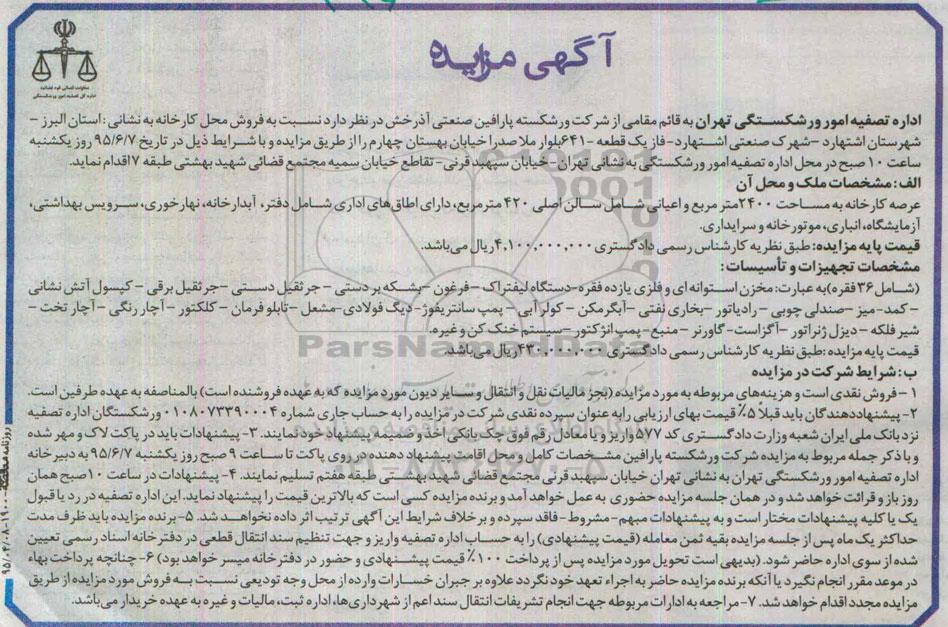 آگهی مزایده
معاونت قضائی قوه قضائیه
اداره کل تصفیه امور ورشکستگی
اداره تصفیه امور ورشکستگی تهران به قائم مقامی از شرکت ورشکسته پارافین صنعتی آذرخش در نظر دارد نسبت به فروش محل کارخانه به نشانی : استان البرز –
شهرستان اشتهارد – شهرک صنعتی اشتهارد – فاز یک قطعه – ۶۴۱بلوار ملاصدرا خیابان بهستان چهارم را از طریق مزایده و با شرایط ذیل در تاریخ ۹۵/۶/۷ روز یکشنبه
ساعت ۱۰ صبح در محل اداره تصفیه امور ورشکستگی به نشانی تهران – خیابان سپهبد قرنی – تقاطع خیابان سمیه مجتمع قضائی شهید بهشتی طبقه ۷ اقدام نماید.
الف : مشخصات ملک و محل آن
عرصه کارخانه به مساحت ۲۴۰۰متر مربع و اعیانی شامل سالن اصلی ۴۲۰ مترمربع، دارای اطاق‌های اداری شامل دفتر، آبدارخانه، نهارخوری، سرویس بهداشتی،
آزمایشگاه، انباری، موتورخانه و سرایداری.
قیمت پایه مزایده: طبق نظریه کارشناس رسمی دادگستری ۴,۱۰۰,۰۰۰,۰۰۰ریال می‌باشد.
مشخصات تجهیزات و تأسیسات :
(شامل ۳۶ فقره) به عبارت: مخزن استوانه ای و فلزی یازده فقره – دستگاه لیفتراک – فرغون – بشکه پر دستی – جرثقیل دستی – جرثقیل برقی – کپسول آتش نشانی
– کمد – میز – صندلی چوبی – رادیاتور – بخاری نفتی – آبگرمکن – کولر آبی – پمپ سانتریفوژ – دیگ فولادی – مشعل – تابلو فرمان – کلکتور – آچار رنگی – آچار تخت –
شیر فلکه – دیزل ژنراتور – آگزاست – گاورنر – منبع – پمپ انژکتور – سیستم خنک کن و غیره.
قیمت پایه مزایده :طبق نظریه کارشناس رسمی دادگستری ۴۳۰,۰۰۰,۰۰۰ریال می‌باشد.
ب : شرایط شرکت در مزایده
۱ – فروش نقدی است و هزینه‌های مربوطه به مورد مزایده (بجز مالیات نقل و انتقال و سایر دیون مورد مزایده که به عهده فروشنده است) بالمناصفه به عهده طرفین است.
۲- پیشنهاددهندگان باید قبلاً ۵٪ قیمت بهای ارزیابی را به عنوان سپرده نقدی شرکت در مزایده را به حساب جاری شماره ۰۱۰۸۰۷۳۳۹۰۰۰۴ ورشکستگان اداره تصفیه
نزد بانک ملی ایران شعبه وزارت دادگستری کد ۵۷۷ واریز و یا معادل رقم فوق چک بانکی اخذ و ضمیمه پیشنهاد خود نمایند. ۳- پیشنهادات باید در پاکت لاک و مهر شده
و با ذکر جمله مربوط به مزایده شرکت ورشکسته پارافین مشخصات کامل و محل اقامت پیشنهاد دهنده در روی پاکت تا ساعت ۹ صبح روز یکشنبه ۹۵/۶/۷ به دبیرخانه
اداره تصفیه امور ورشکستگی تهران به نشانی تهران خیابان سپهبد قرنی مجتمع قضائی شهید بهشتی طبقه هفتم تسلیم نمایند. ۴- پیشنهادات در ساعت ۱۰ صبح همان
روز باز و قرائت خواهد شد و در همان جلسه مزایده حضوری به عمل خواهد آمد و برنده مزایده کسی است که بالاترین قیمت را پیشنهاد نماید. این اداره تصفیه در رد یا قبول
یک یا کلیه پیشنهادات مختار است و به پیشنهادات مبهم – مشروط – فاقد سپرده و بر خلاف شرایط این آگهی ترتیب اثر داده نخواهد شد. ۵- برنده مزایده باید ظرف مدت
حداکثر یک ماه پس از جلسه مزایده بقیه ثمن معامله (قیمت پیشنهادی) را به حساب اداره تصفیه واریز و جهت تنظیم سند انتقال قطعی در دفترخانه اسناد رسمی تعیین
شده از سوی اداره حاضر شود. (بدیهی است تحویل مورد مزایده پس از پرداخت ۱۰۰٪ قیمت پیشنهادی و حضور در دفترخانه میسر خواهد بود) ۶- چنانچه پرداخت بهاء
در موعد مقرر انجام نگیرد یا آنکه برنده مزایده حاضر به اجراء تعهد خود نگردد علاوه بر جبران خسارات وارده از محل وجه تودیعی نسبت به فروش مورد مزایده از طریق
مزایده مجدد اقدام خواهد شد. ۷- مراجعه به ادارات مربوطه جهت انجام تشریفات انتقال سند اعم از شهرداری‌ها، اداره ثبت، مالیات و غیره به عهده خریدار می‌باشد.
ParsNamadData
۰۲۱-۸۸۳۴۹۶۷۰-۵